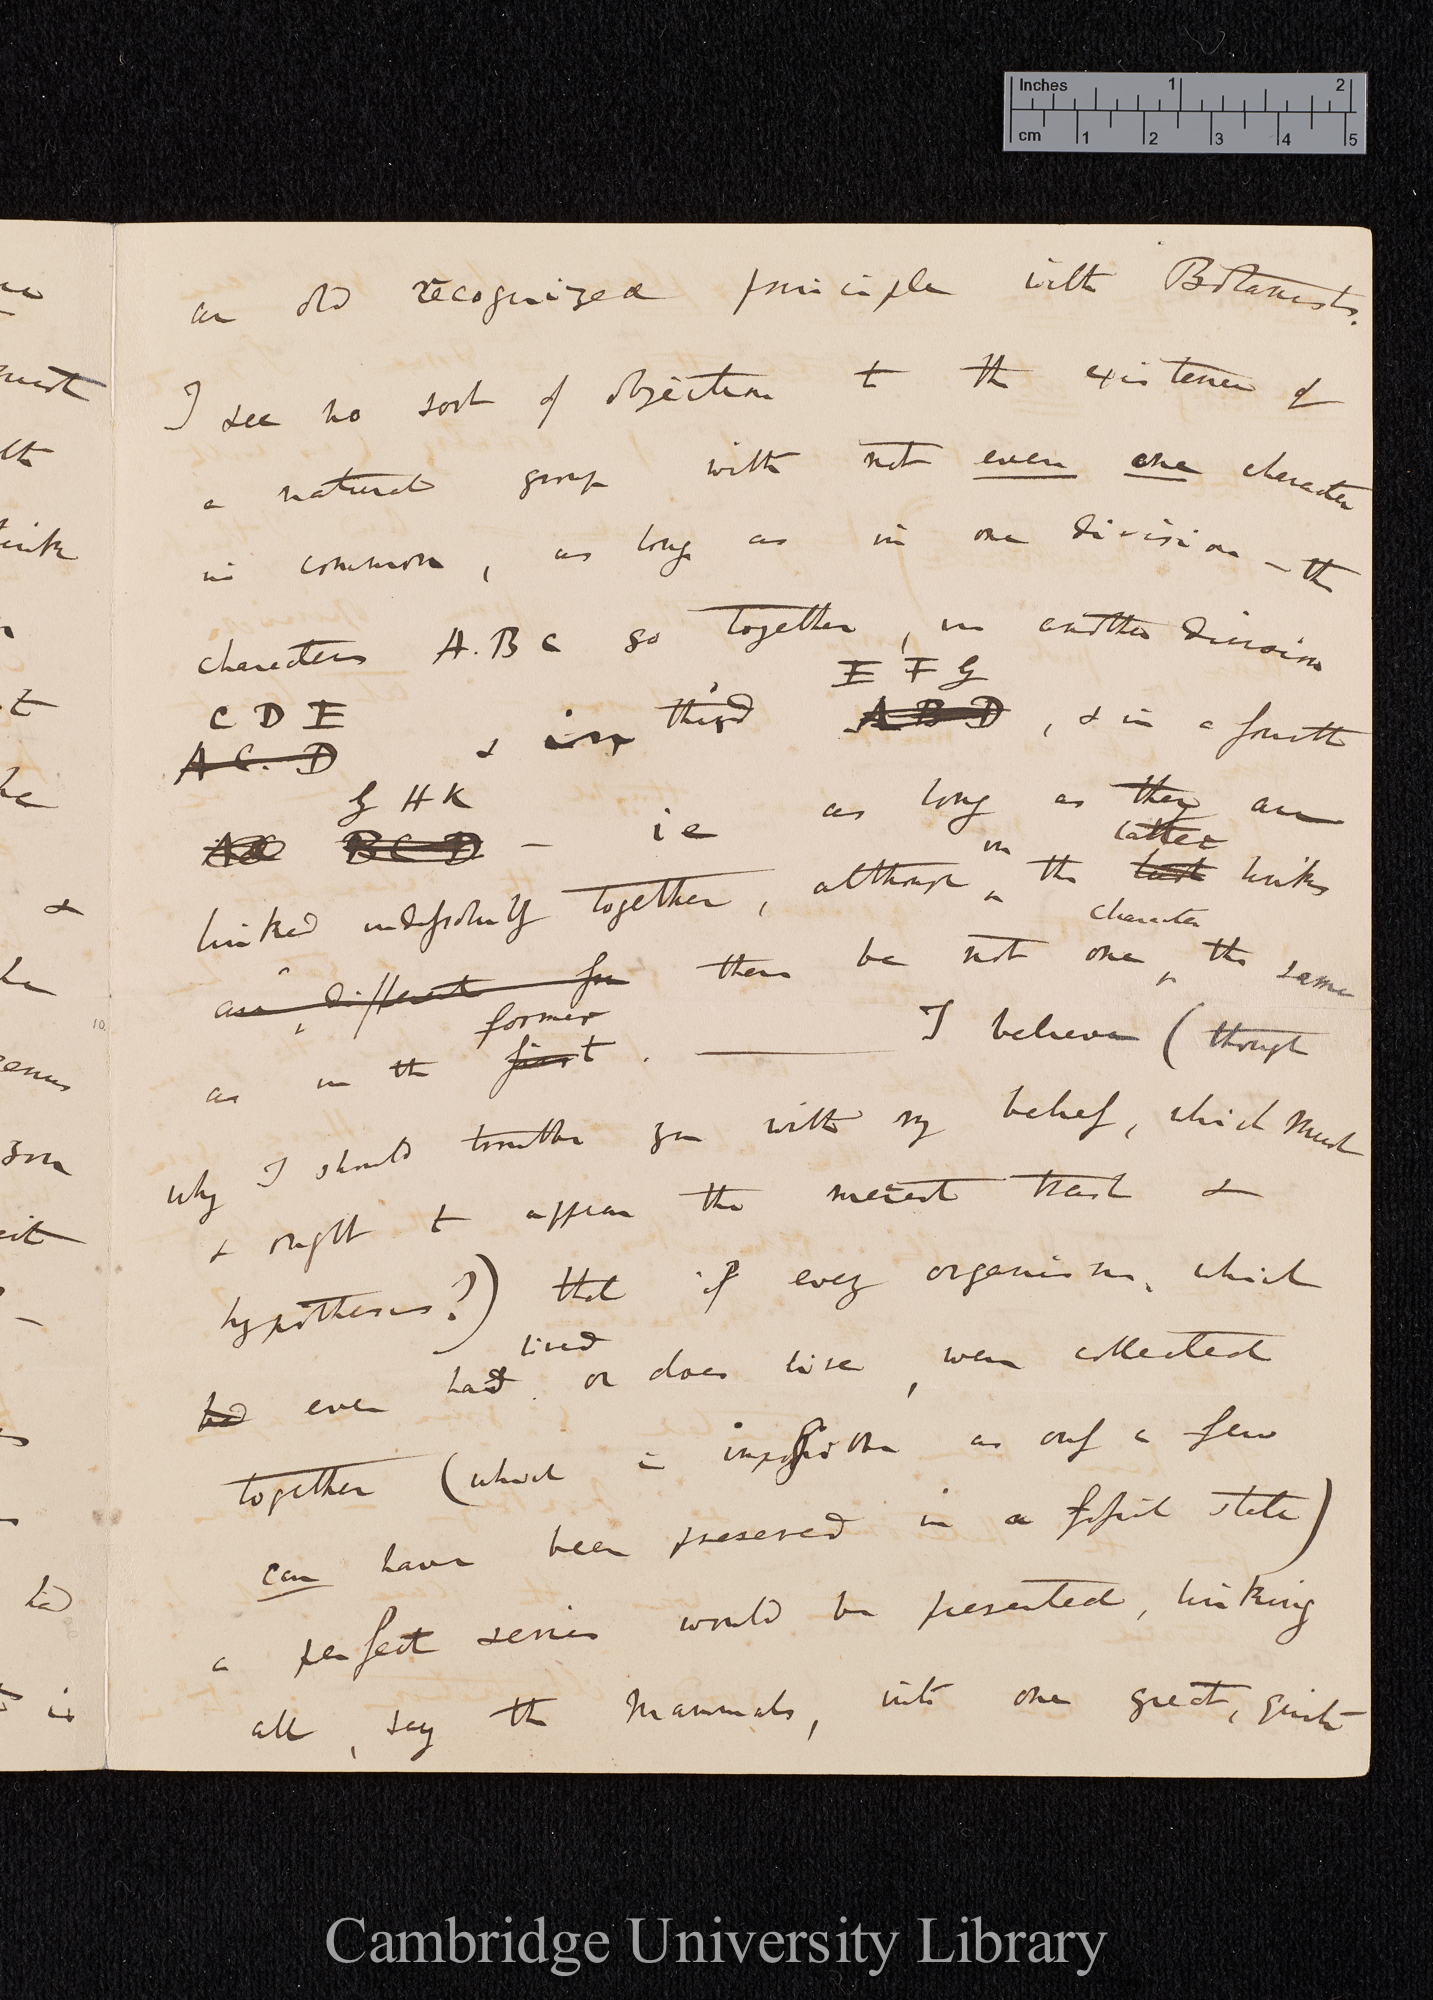 Inches 1 2
cm 1 2 3 4 5
an old recognized principle with Botanists.
I see no sort of objection to the existence of
a natural group with not even one character
in common, as long as in one division – the
characters A. B C go together, in another division
E F G
C D E
A C. D & in third A B D, & in a fourth
G H K
B C D – ie as long as they are
in latter
linked indissolubly together, although the last links
character
are different from there be not one the same
former
as in the first. — I believe (though
why I should trouble you with my belief, which must
& ought to appear the merest trash &
hypothesis?) that if every organism, which
lived
had ever had or does live, were collected
together (which is impossible as only a few
can have been preserved in a fossil state)
a perfect series would be presented, linking
all, say the Mammals, into one great, quite
10.
Cambridge University Library